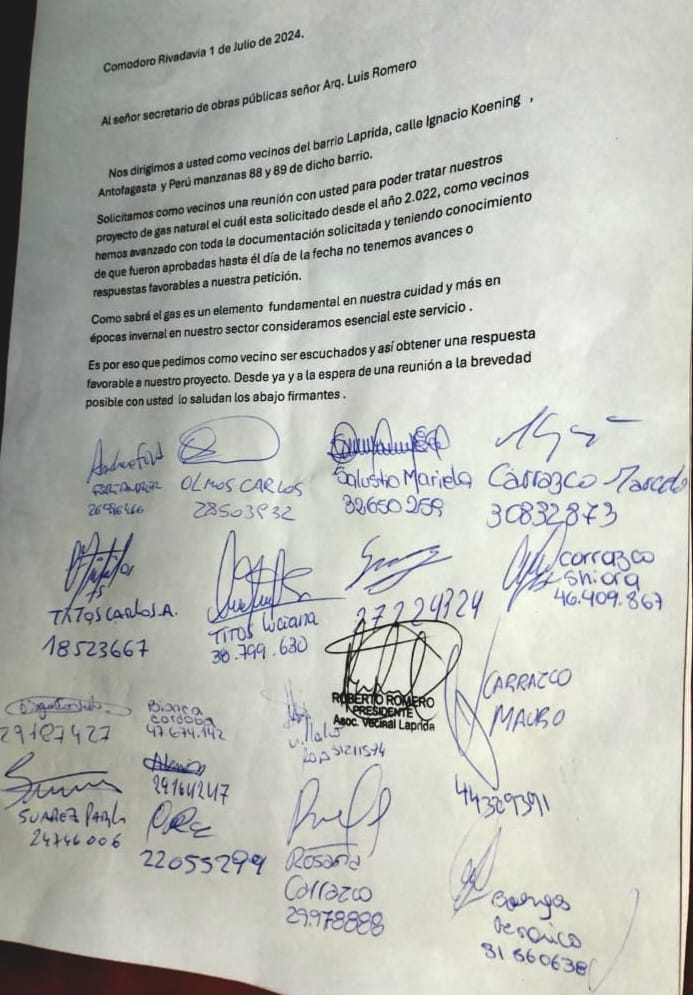 Comodoro Rivadavia 1 de Julio de 2024.
Al señor secretario de obras públicas señor Arq. Luis Romero
Nos dirigimos a usted como vecinos del barrio Laprida, calle Ignacio Koening ,
Antofagasta y Perú manzanas 88 y 89 de dicho barrio.
Solicitamos como vecinos una reunión con usted para poder tratar nuestros
proyecto de gas natural el cuál esta solicitado desde el año 2.022, como vecinos
hemos avanzado con toda la documentación solicitada y teniendo conocimiento
de que fueron aprobadas hasta él día de la fecha no tenemos avances o
respuestas favorables a nuestra petición.
Como sabrá el gas es un elemento fundamental en nuestra cuidad y más en
épocas invernal en nuestro sector consideramos esencial este servicio .
Es por eso que pedimos como vecino ser escuchados y así obtener una respuesta
favorable a nuestro proyecto. Desde ya y a la espera de una reunión a la brevedad
posible con usted lo saludan los abajo firmantes .
OLMOS CARLOS
28503932
Salustio Mariela
32650259
Carrazco Marcelo
30832873
TITOS CARLOS A.
18523667
TITOS Luciana
38.799.630
27224324
carrazco
Shiara
46.409.867
ROBERTO ROMERO
PRESIDENTE
Asoc. Vecinal Laprida
CARRAZCO
MAURO
44329391
29187427
Bianca
Cordoba
47.674.142
31211574
SUAREZ Pablo
24746006
29164247
22055299
Rosana
Carrazco
29.978888
31560638